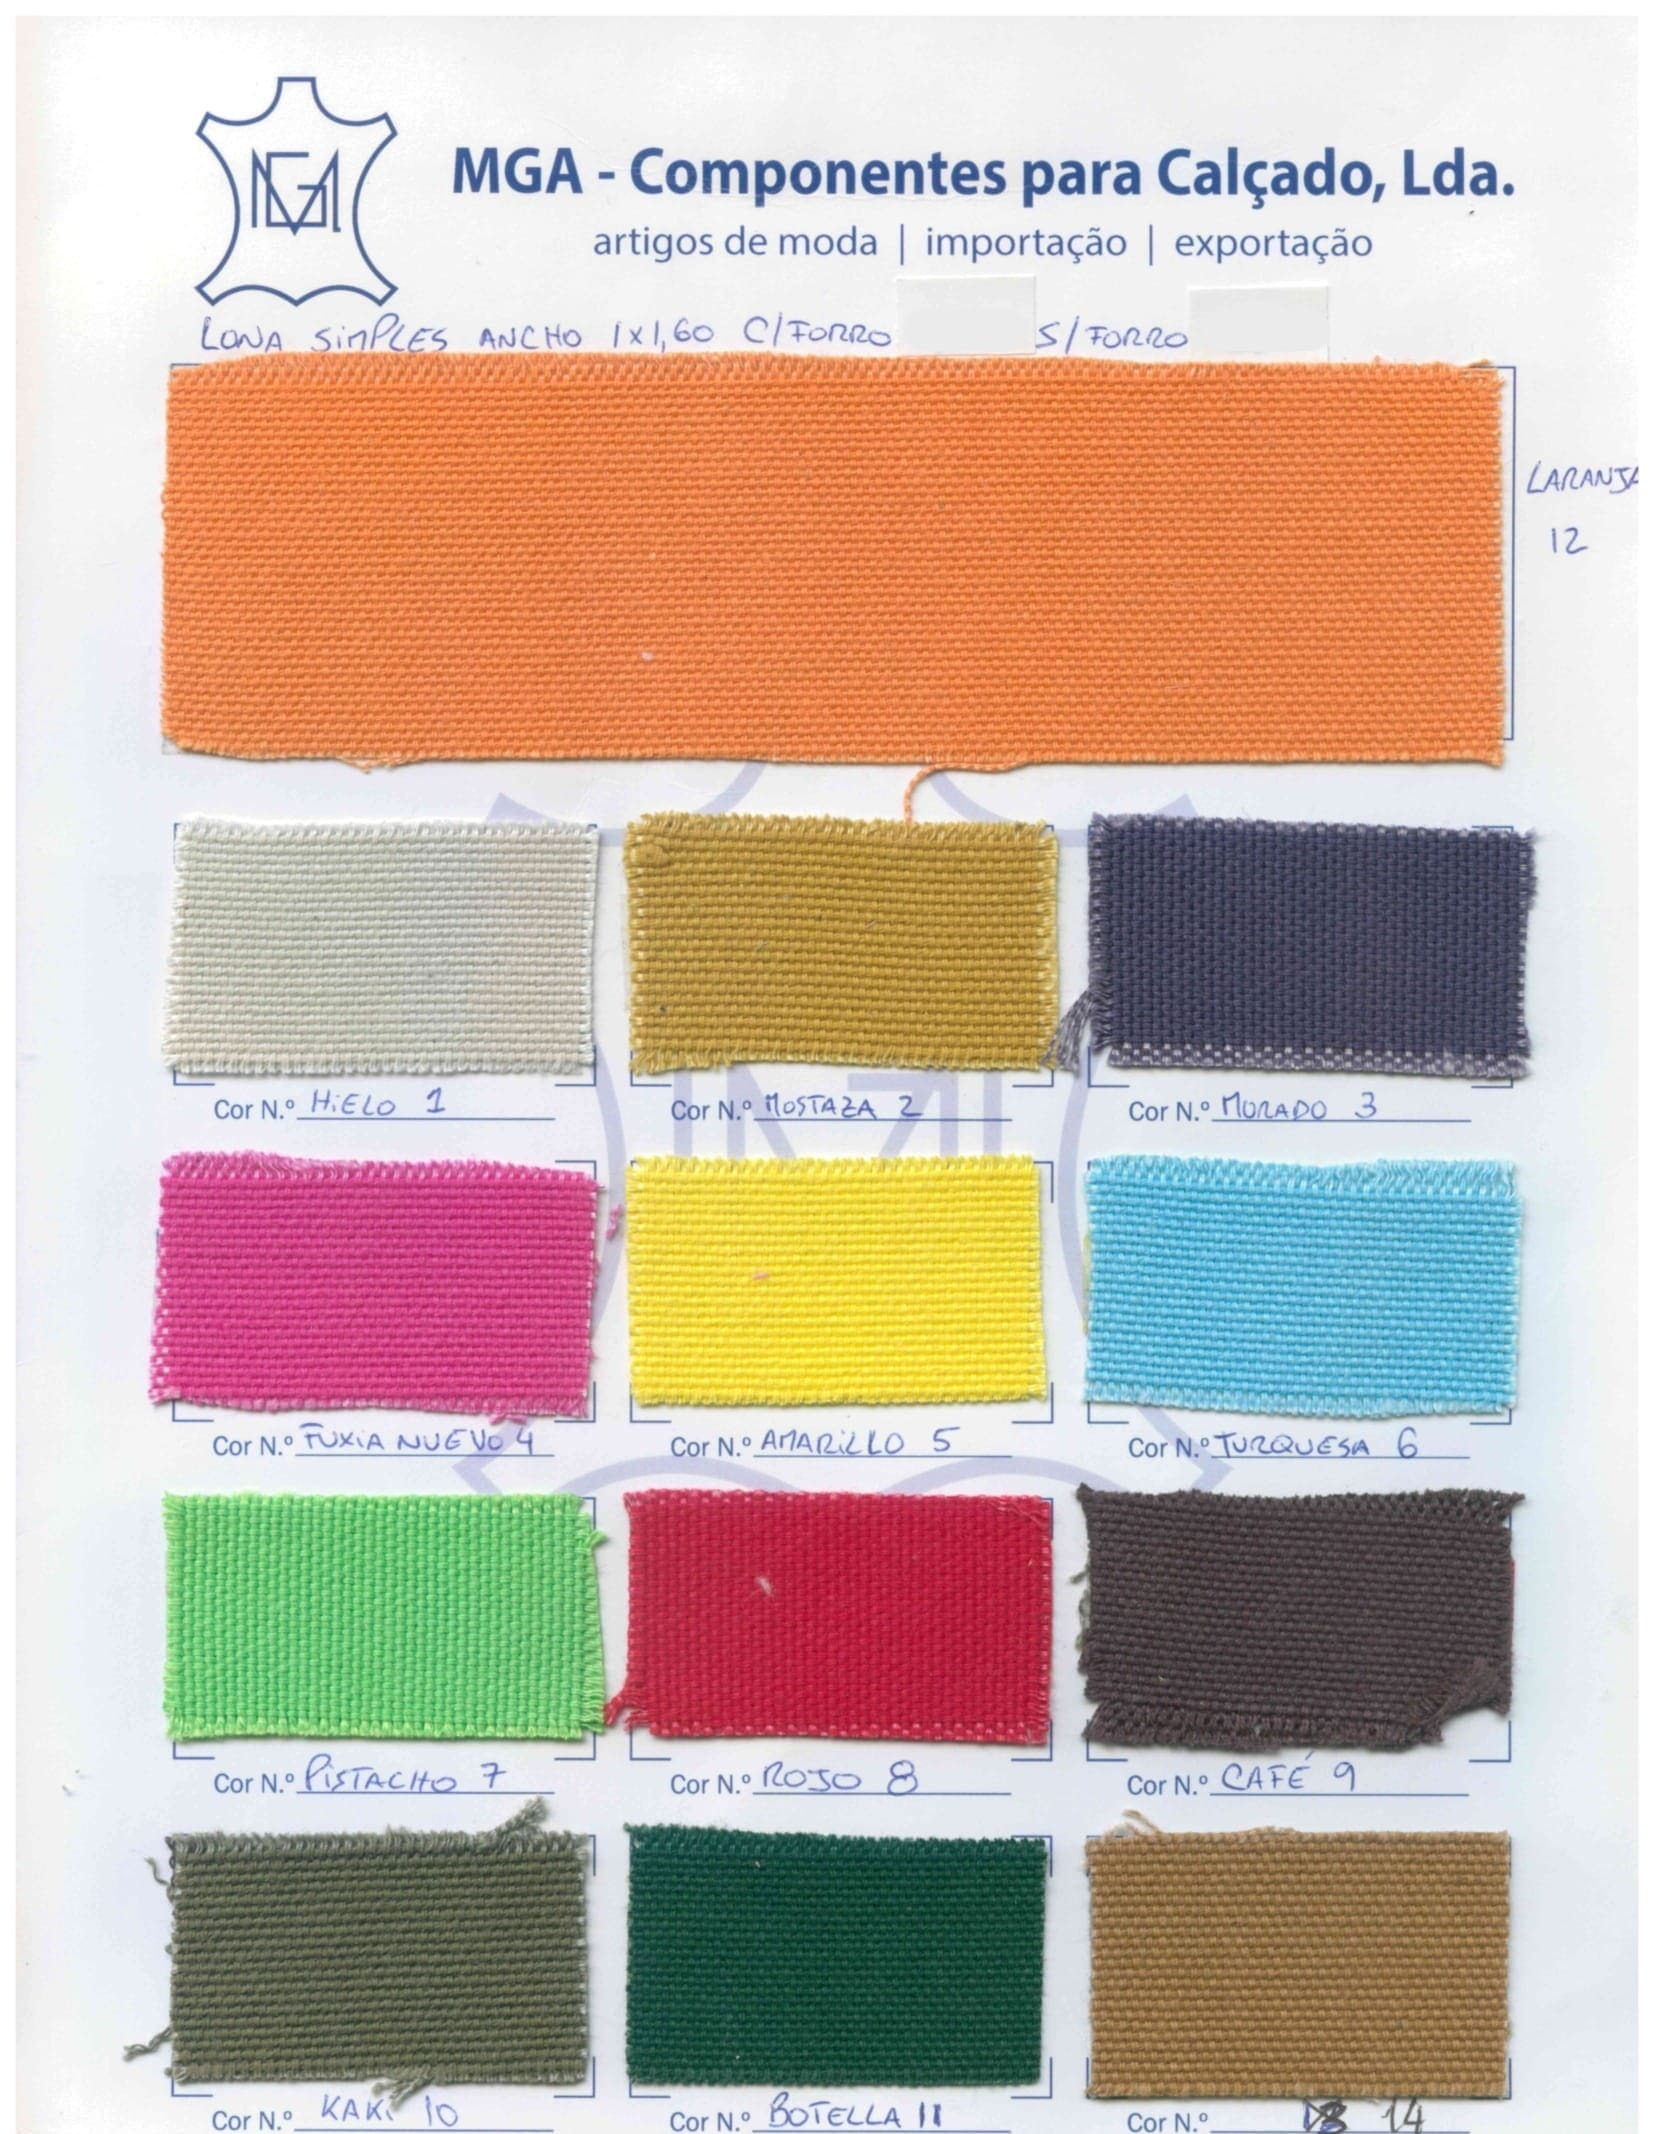 MGA
MGA - Componentes para Calçado, Lda.
artigos de moda | importação | exportação
LONA SIMPLES ANCHO 1x1,60 C/FORRO S/FORRO
LARANJA
12
Cor N.º HIELO 1
Cor N.º MOSTAZA 2
Cor N.º MORADO 3
Cor N.º FUXIA NUEVO 4
Cor N.º AMARILLO 5
Cor N.º TURQUESA 6
Cor N.º PISTACHO 7
Cor N.º ROJO 8
Cor N.º CAFÉ 9
Cor N.º KAKI 10
Cor N.º BOTELLA 11
Cor N.º 14